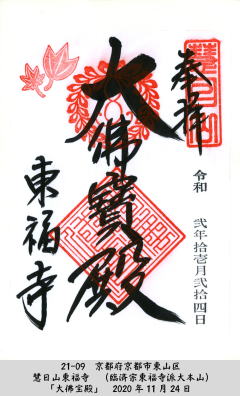 奉拝
慧日山
大佛寳殿
令和 弐年拾壱月弐拾四日
東福寺
21-09 京都府京都市東山区
慧日山東福寺 (臨済宗東福寺派大本山)
「大佛宝殿」 2020年11月24日